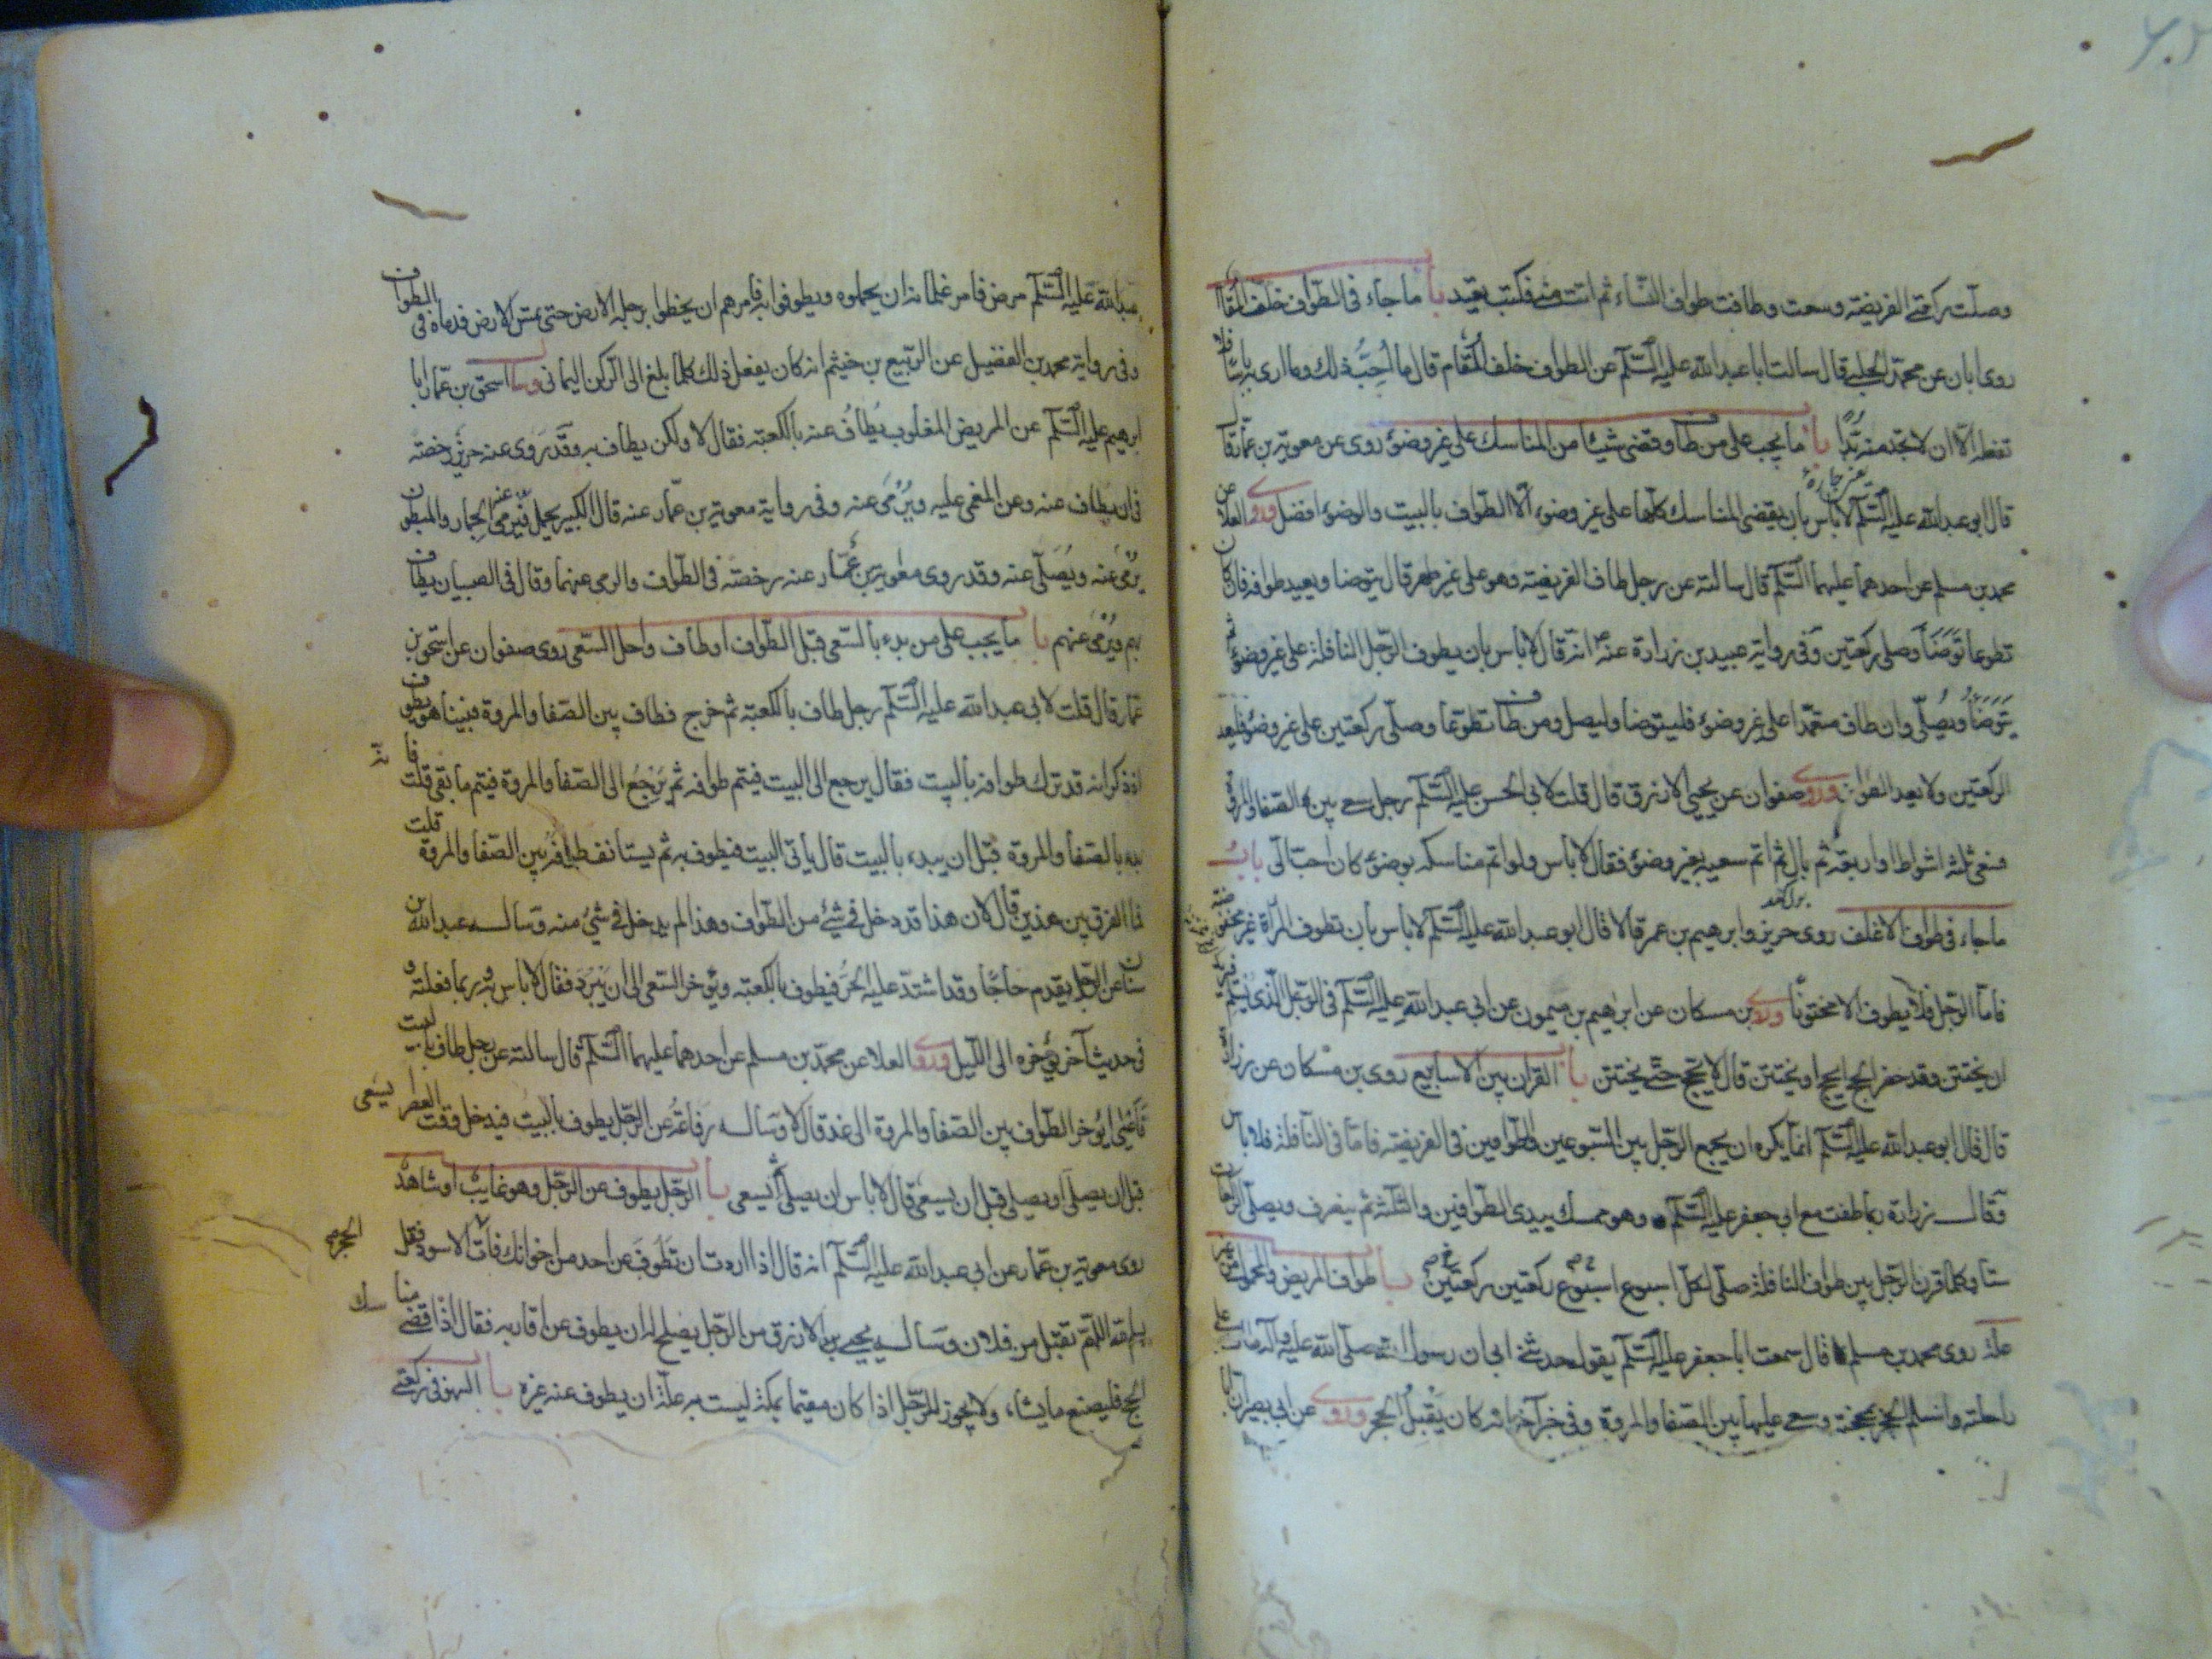 وصلّت ركعتى الفريضة وسعت وطافت طواف النساء ثم اتت منى فكتب تعيد با ما جاء فى الطواف خلف المقا
روى ابان عن محمد الحلبى قال سالت ابا عبد الله عليه السلام عن الطواف خلف المقام قال ما احبّ ذلك وما ارى به باسا فلا
تفعله الّا ان لا تجد منه بدا با ما يجب على من طاف وقضى شيئا من المناسك على غير وضوء روى عن معوية بن عمار قا
قال ابو عبد الله عليه السلام لا باس بان يقضى المناسك كلّها على غير وضوء الّا الطواف بالبيت والوضوء افضل وروى العلا عن
محمد بن مسلم عن احدهما عليهما السلام قال سالته عن رجل طاف الفريضة وهو على غير طهر قال يتوضا ويعيد طوافه فان كان
تطوعا توضّأ وصلى ركعتين وفى رواية عبيد بن زرارة عنه انه قال لا باس بان يطوف الرجل النافلة على غير وضوء ثم
يتوضّأ ويُصلّى وان طاف متعمدا على غير وضوء فليتوضا وليصل ومن طاف تطوّعا وصلّى ركعتين على غير وضوء فليعد
الركعتين ولا يعد الطواف وروى صفوان عن يحيى الازرق قال قلت لابى الحسن عليه السلام رجل سعى بين الصفا والمروة
فسعى ثلثة اشواط او اربعة ثم بال ثم اتم سعيه بغير وضوء فقال لا باس ولو اتم مناسكه بوضوء كان احبّ الىّ باب
ما جاء فى طواف الاغلف روى حريز وابرهيم بن عمر قالا قال ابو عبد الله عليه السلام لا باس بان تطوف المرأة غير مخفوضة
فامّا الرجل فلا يطوف الا مختونًا وروى بن مسكان عن ابرهيم بن ميمون عن ابى عبد الله عليه السلام فى الرجل الذى يُسلم فيريد
ان يختتن وقد حضر الحج ايحج او يختتن قال لا يحج حتى يختتن با القران بين الاسابيع روى بن مسكان عن زرارة
قال قال ابو عبد الله عليه السلام انما يكره ان يجمع الرجل بين السبوعين والطوافين فى الفريضة فامّا فى النافلة فلا باس
وقال زرارة ربما طفت مع ابى جعفر عليه السلام وهو ممسك بيدى الطوافين والثلثة ثم ينصرف ويصلى الركعات
ستا وكلما قرن الرجل بين طواف النافلة صلّى لكل اسبوع اسبوع ركعتين ركعتين با طواف المريض والمحمول من غير
علة روى محمد بن مسلم قال سمعت ابا جعفر عليه السلام يقول حدثنى ابى ان رسول الله صلّى الله عليه وآله طاف على
راحلته واستلم الحجر بمحجنه وسعى عليها بين الصفا والمروة وفى خبر آخر انه كان يُقبّل الحجر وروى عن ابى بصير ان ابا
عبد الله عليه السلام مرض فامر غلمانه ان يحملوه ويطوفوا به فامرهم ان يخطوا برجله الارض حتى تمس الارض قدماه فى الطواف
وفى رواية محمد بن الفضيل عن الربيع بن خيثم انه كان يفعل ذلك كلما بلغ الى الركن اليمانى وسأل اسحق بن عمار ابا
ابرهيم عليه السلام عن المريض المغلوب يُطافُ عنه بالكعبة فقال لا ولكن يطاف به وقد روى عنه حريز رخصة
فى ان يطاف عنه وعن المغمى عليه ويُرْمى عنه وفى رواية معوية بن عمار عنه قال الكبير يحمل فيرمى الجمار والمبطون
يرمى عنه ويُصلّى عنه وقد روى معوية بن عمّار عنه رخصة فى الطواف والرمى عنهما وقال فى الصبيان يطاف
بهم ويُرْمى عنهم با ما يجب على من بدء بالسعى قبل الطواف او طاف واخل السعى روى صفوان عن اسحق بن
عمار قال قلت لابى عبد الله عليه السلام رجل طاف بالكعبة ثم خرج فطاف بين الصفا والمروة فبينا هو يطوف
اذ ذكر انه قد ترك طوافه بالبيت فقال يرجع الى البيت فيتم طوافه ثم يَرْجِعُ الى الصفا والمروة فيتم ما بقى قلت فانه
بدء بالصفا والمروة قبل ان يبدء بالبيت قال ياتى البيت فيطوف به ثم يستانف طوافه بين الصفا والمروة قلت
فما الفرق بين هذين قال لان هذا قد دخل فى شئ من الطواف وهذا لم يدخل فى شئ منه وسأله عبد الله بن
سنان عن الرجل يقدم حاجًا وقد اشتدّ عليه الحرّ فيطوف بالكعبة ويؤخر السعى الى ان يَبرد فقال لا باس به وربما فعلته و
فى حديث آخر يؤخره الى الليل وروى العلا عن محمد بن مسلم عن احدهما عليهما السلام قال سالته عن رجل طاف بالبيت
فاعيى ايؤخر الطواف بين الصفا والمروة الى غد قال لا وسأله رفاعة عن الرجل يطوف بالبيت فيدخل وقت العصر يسعى
قبل ان يصلى او يصلى قبل ان يسعى قال لا باس ان يصلى ثم يسعى با الرجل يطوف عن الرجل وهو غايب او شاهد
روى معوية بن عمار عن ابى عبد الله عليه السلام انه قال اذا اردت ان تطوف عن احد من اخوانك فات الحجر الاسود فقل
بسم الله اللهم تقبل من فلان وسأله يحيى بن الازرق عن الرجل يصلح له ان يطوف عن اقاربه فقال اذا قضى مناسك
الحج فليصنع ما يشاء ولا يجوز للرجل اذا كان مقيما بمكة ليست به علة ان يطوف عنه غيره با السهو فى ركعتى